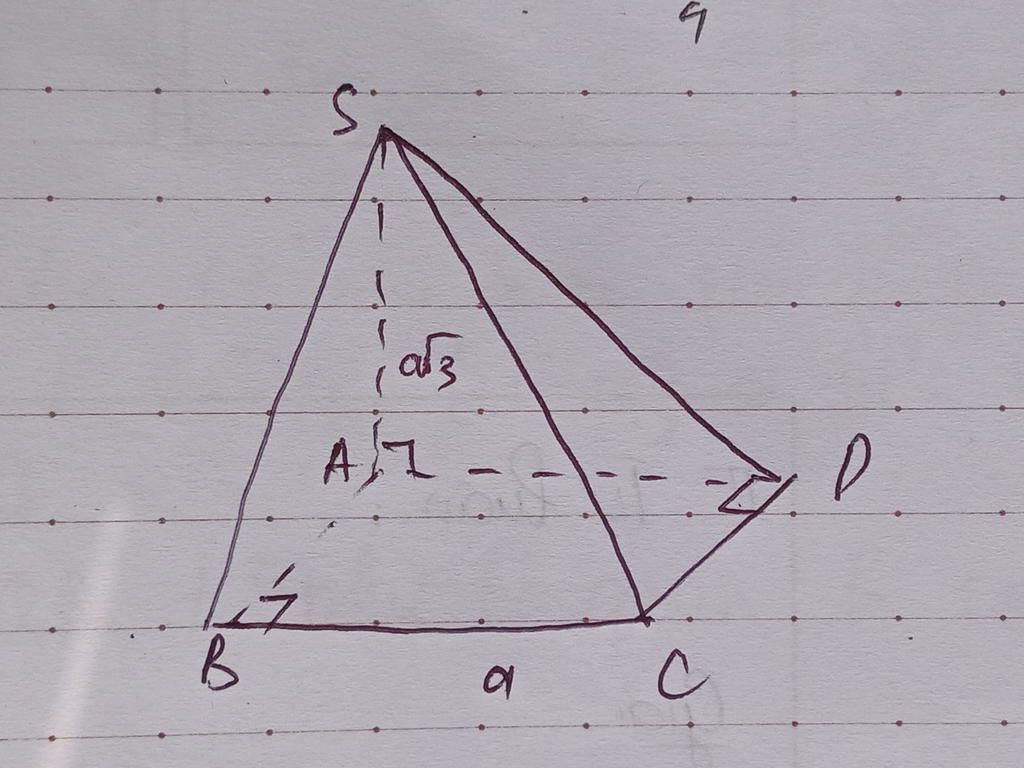 9
S
a√3
A
D
B
a
C